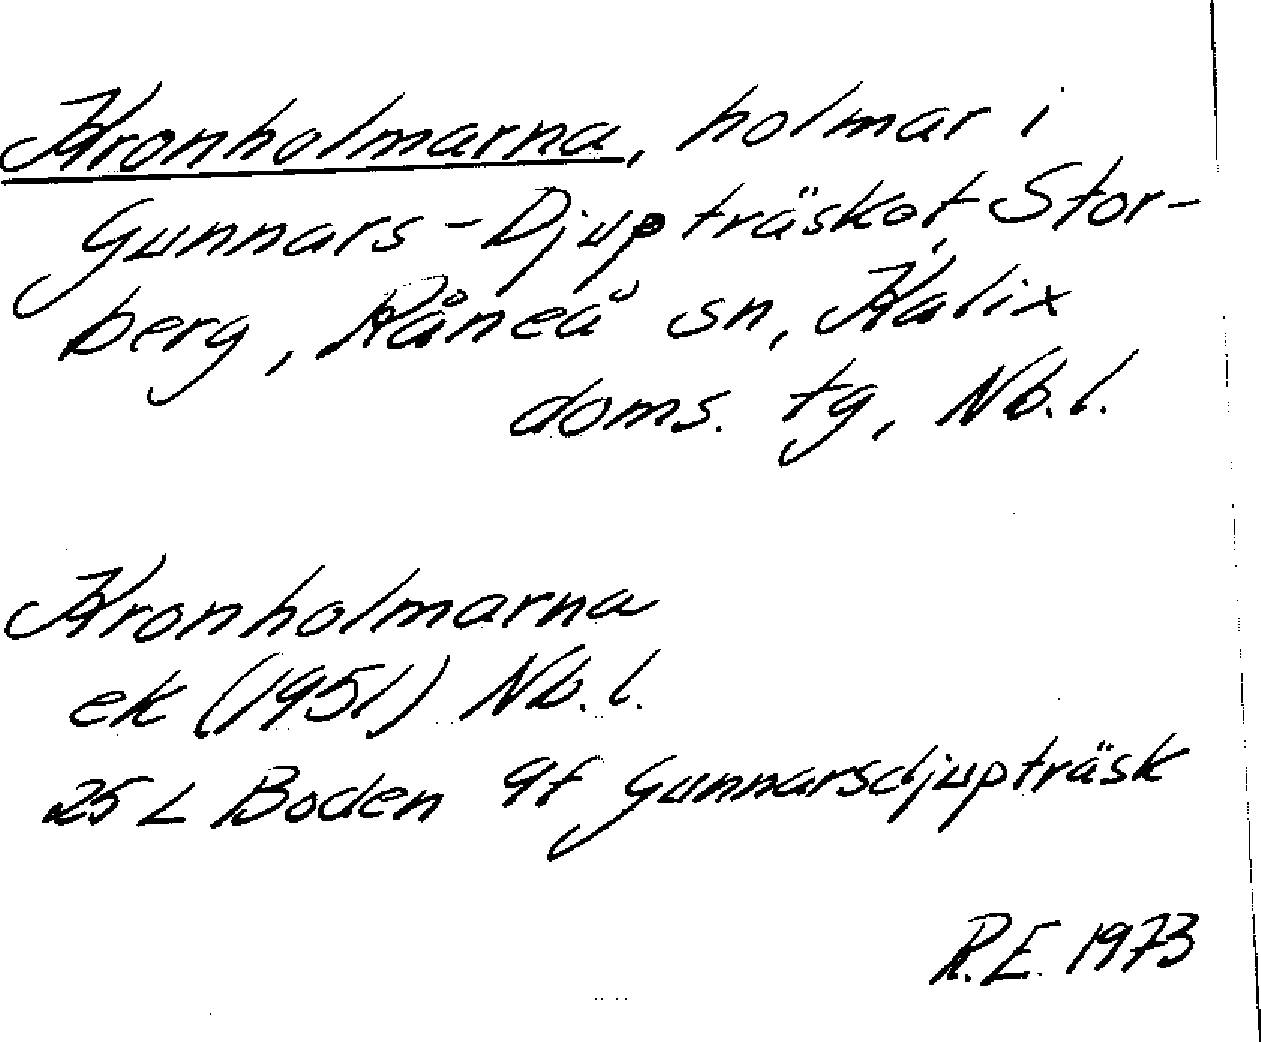 Kronholmarna, holmar i
Gunnars-Djupträsket, Stor-
berg, Råneå sn, Kalix
doms. tg, Nb. l.
Kronholmarna
ek (1951) Nb. l.
25 L Boden 9f Gunnarsdjupträsk
R.E. 1973